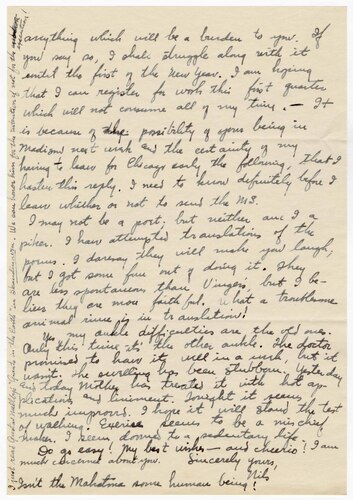 anything which will be a burden to you. If
you say so, I shall struggle along with it
until the first of the New Year. I am hoping
that I can register for work this first quarter
which will not consume all of my time. — It
is because of the possibility of yours being in
Madison next week and the certainty of my
having to leave for Chicago early the following, that I
hasten this reply. I need to know definitely before I
leave whether or not to send the MS.
I may not be a poet, but neither am I a
piker. I have attempted translations of the
poems. I daresay they will make you laugh,
but I got some fun out of doing it. They
are less spontaneous than Vinger's, but I be-
lieve they are more faithful. What a troublesome
animal rime is in translation!
Yes my ankle difficulties are the old ones.
Only this time it's the other ankle. The doctor
promised to have it well in a week, but it
won't. The swelling has been stubborn. Yesterday
and today Mother has treated it with hot ap-
plications and liniment. Tonight it seems
much improved. I hope it will stand the test
of walking. Exercise seems to be a mischief
maker. I seem doomed to a sedentary life.
Do go easy! My best wishes — and cheerio! I am
much concerned about you. Sincerely yours,
Nils
Isn't the Mahatma some human being!